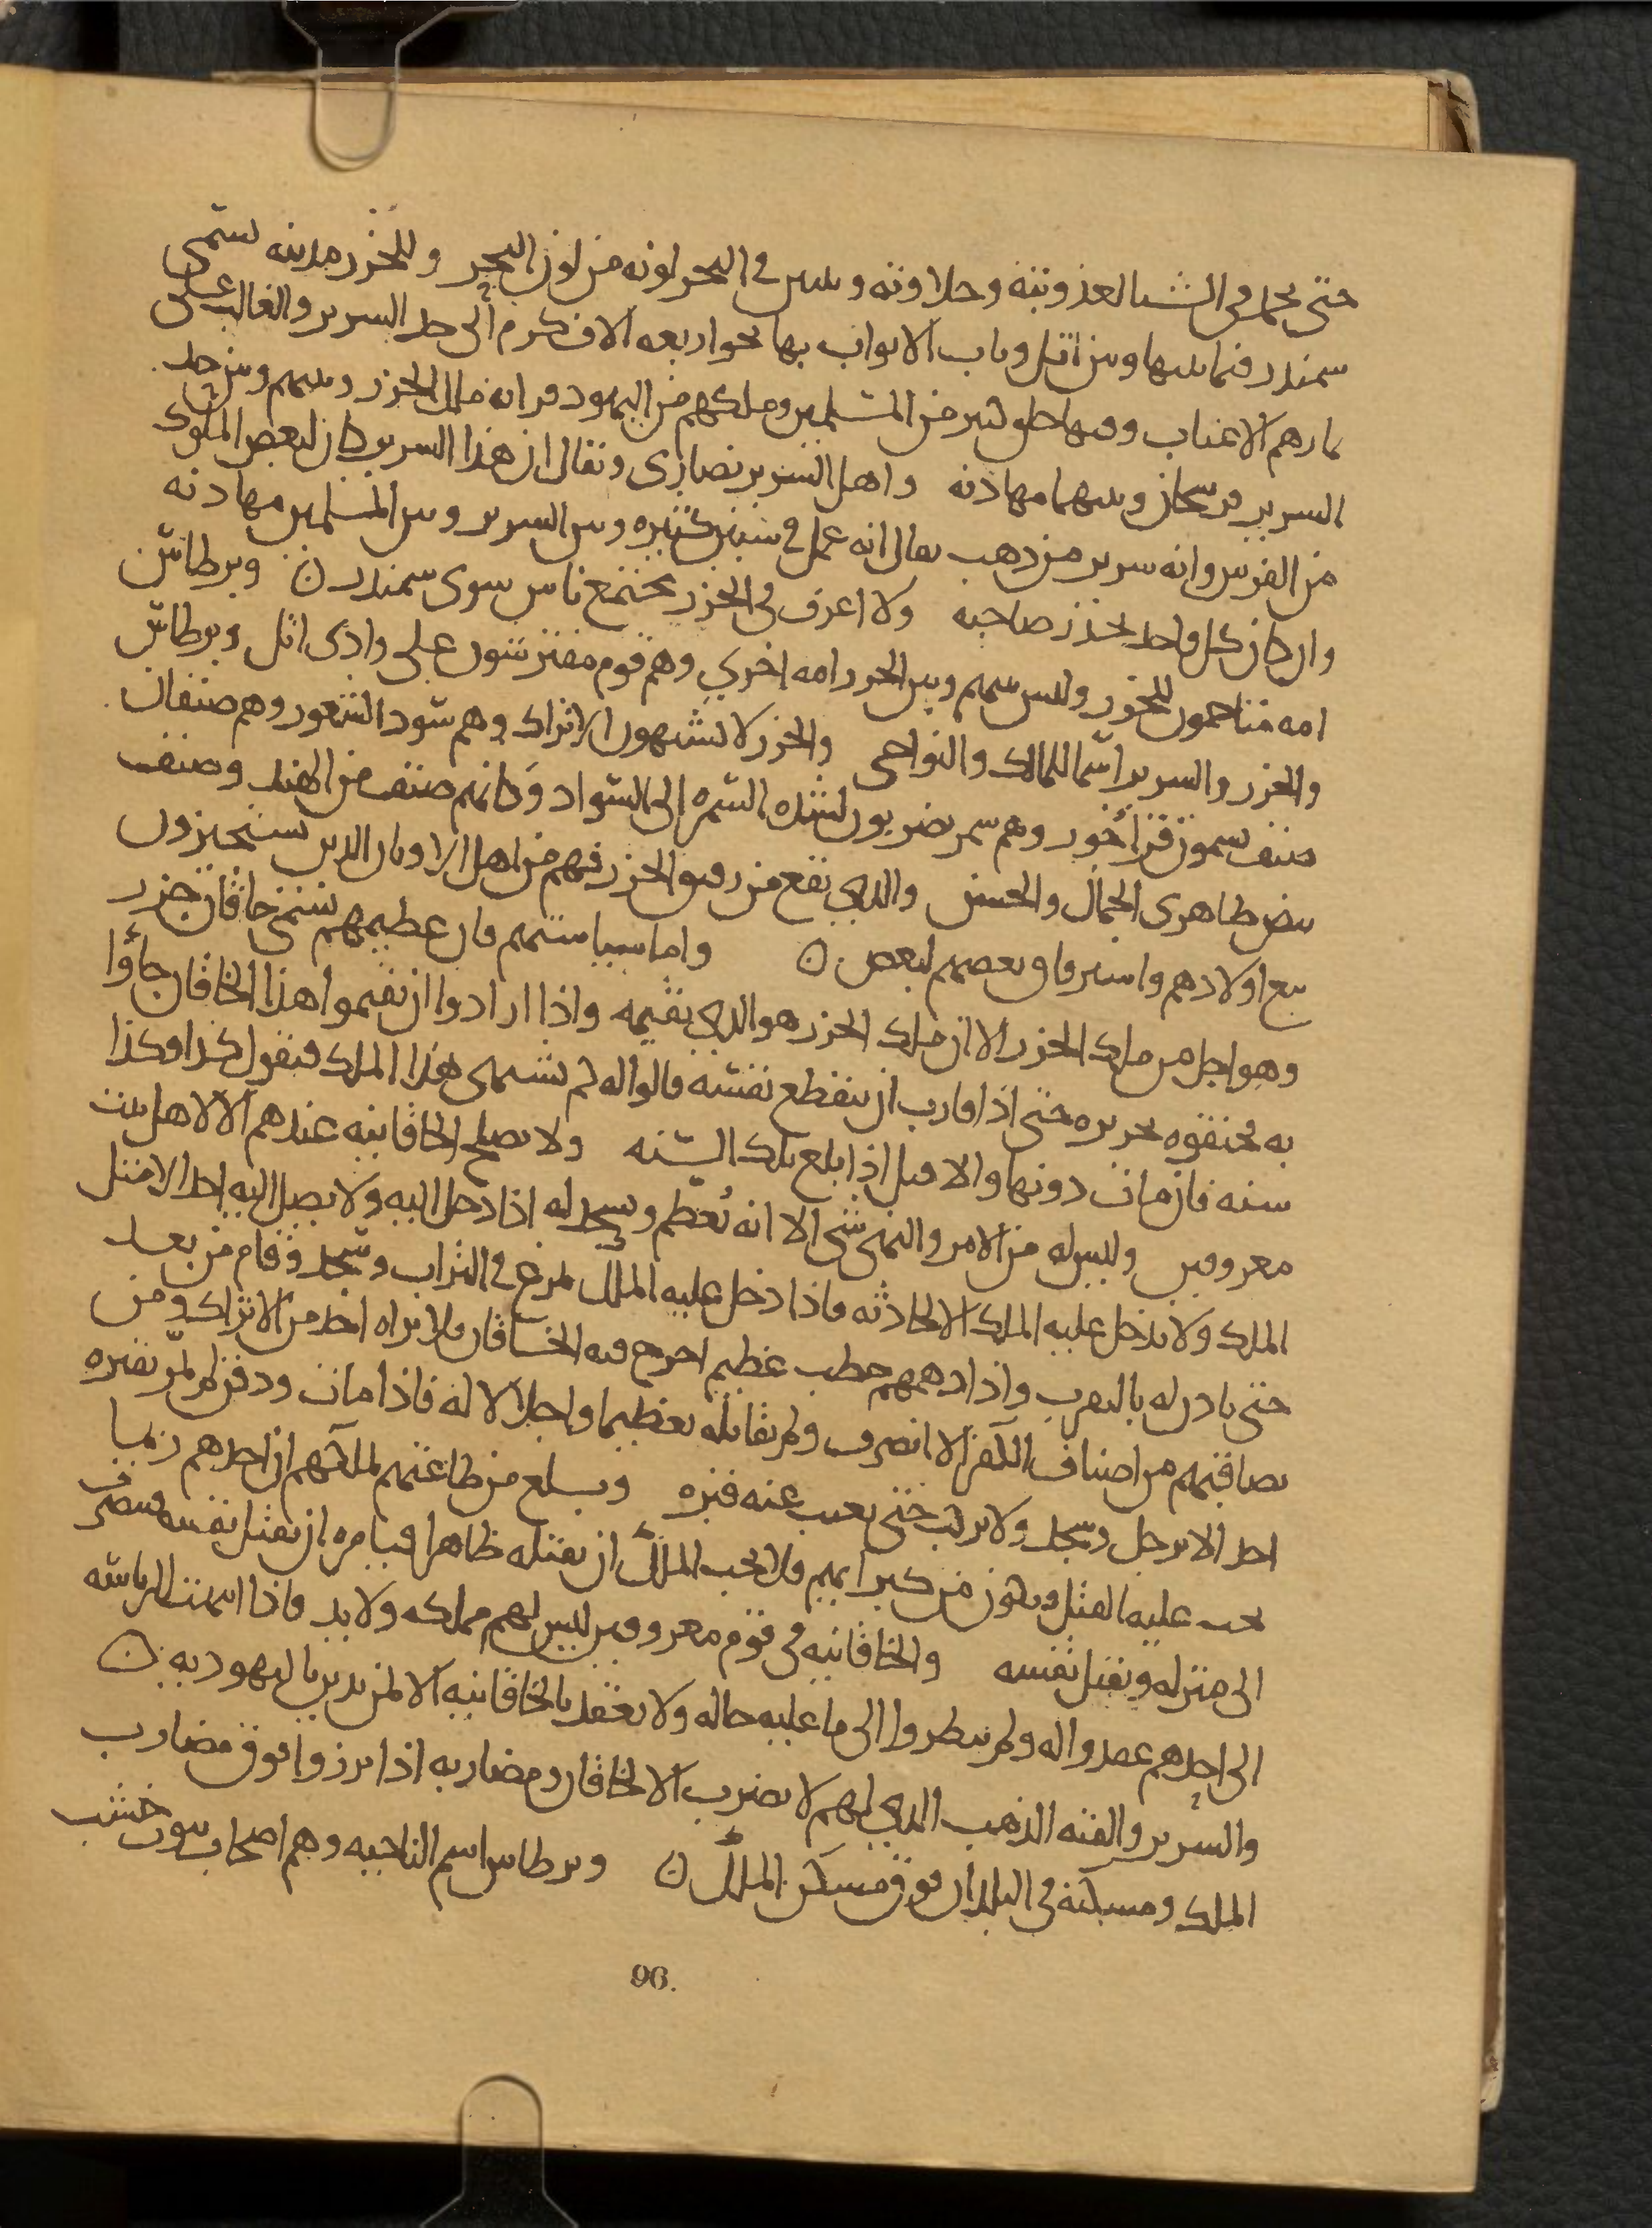 حتى يجمد فى الشتا لعذوبته وحلاوته ويتبين فى البحر لونه من لون البحر وللخزر مدينه تسمى
سمندر فيما بينها وبين اتل وباب الابواب بها نحو اربعه الاف كرم الى حد السرير والغالب على
ثمارهم الاعناب وفيها خلق كثير من المسلمين وملكهم من اليهود قرابه ملك الخزر وبينهم وبين حد
السرير فرسخان وبينهما مهادنه واهل السرير نصارى ويقال ان هذا السرير كان لبعض الملوك
من الفرس وانه سرير من ذهب يقال انه عمل فى سنين كثيره وبين السرير وبين المسلمين مهادنه
وان كان كل واحد يحذر صاحبه ولا اعرف فى الخزر مجتمع ناس سوى سمندر ن وبرطاس
امه متاخمون للخزر وليس بينهم وبين الخزر امه اخرى وهم قوم مفترشون على وادى اتل وبرطاس
والخزر والسرير اسما للممالك والنواحى والخزر لا يشبهون الاتراك وهم سود الشعور وهم صنفان
صنف يسمون قراخور وهم سمر يضربون لشده السمره الى السواد وكانهم صنف من الهند وصنف
بيض ظاهرى الجمال والحسن والذى يقع من رقيق الخزر فهم من اهل الاوثان الذين يستجيزون
بيع اولادهم واسترقاق بعضهم لبعض ن واما سياستهم فان عظيمهم يسمى خاقان خزر
وهو اجل من ملك الخزر الا ان ملك الخزر هو الذى يقيمه واذا ارادوا ان يقيموا هذا الخاقان جاؤا
به فخنقوه بحريره حتى اذا قارب ان ينقطع نفسه قالوا له كم تشتهى هذا الملك فيقول كذا وكذا
سنه فان مات دونها والا قتل اذا بلغ تلك السنه ولا يصلح الخاقانيه عندهم الا لاهل بيت
معروفين وليس له من الامر والنهى شى الا انه يُعظم ويسجد له اذا دخل اليه ولا يصل اليه احد الا مثل
الملك ولا يدخل عليه الملك الا لحادثه فاذا دخل عليه الملك تمرغ فى التراب وسجد وقام من بعد
حتى ياذن له بالتقرب واذا دهمهم خطب عظيم اخرج فيه الخاقان فلا يراه احد من الاتراك ومن
يصاقبهم من اصناف الكفر الا انصرف ولم يقاتله تعظيما واجلالا له فاذا مات ودفن لم يمر بقبره
احد الا ترجل وسجد ولا يركب حتى يغيب عنه قبره ويبلغ من طاعتهم لملكهم ان احدهم ربما
يجب عليه القتل ويكون من كبرائهم فلا يحب الملك ان يقتله ظاهرا فيامره ان يقتل نفسه فينصرف
الى منزله ويقتل نفسه والخاقانيه فى قوم معروفين ليس لهم مملكه ولا يد فاذا انتهت الرياسه
الى احدهم عقدوا له ولم ينظروا الى ما عليه حاله ولا يعقد بالخاقانيه الا لمن يدين باليهوديه ن
والسرير والقبه الذهب الذى لهم لا يضرب الا لخاقان ومضاربه اذا برزوا فوق مضارب
الملك ومسكنه فى البلدان فوق مسكن الملك ن وبرطاس اسم الناحيه وهم اصحاب بيوت خشب
96.